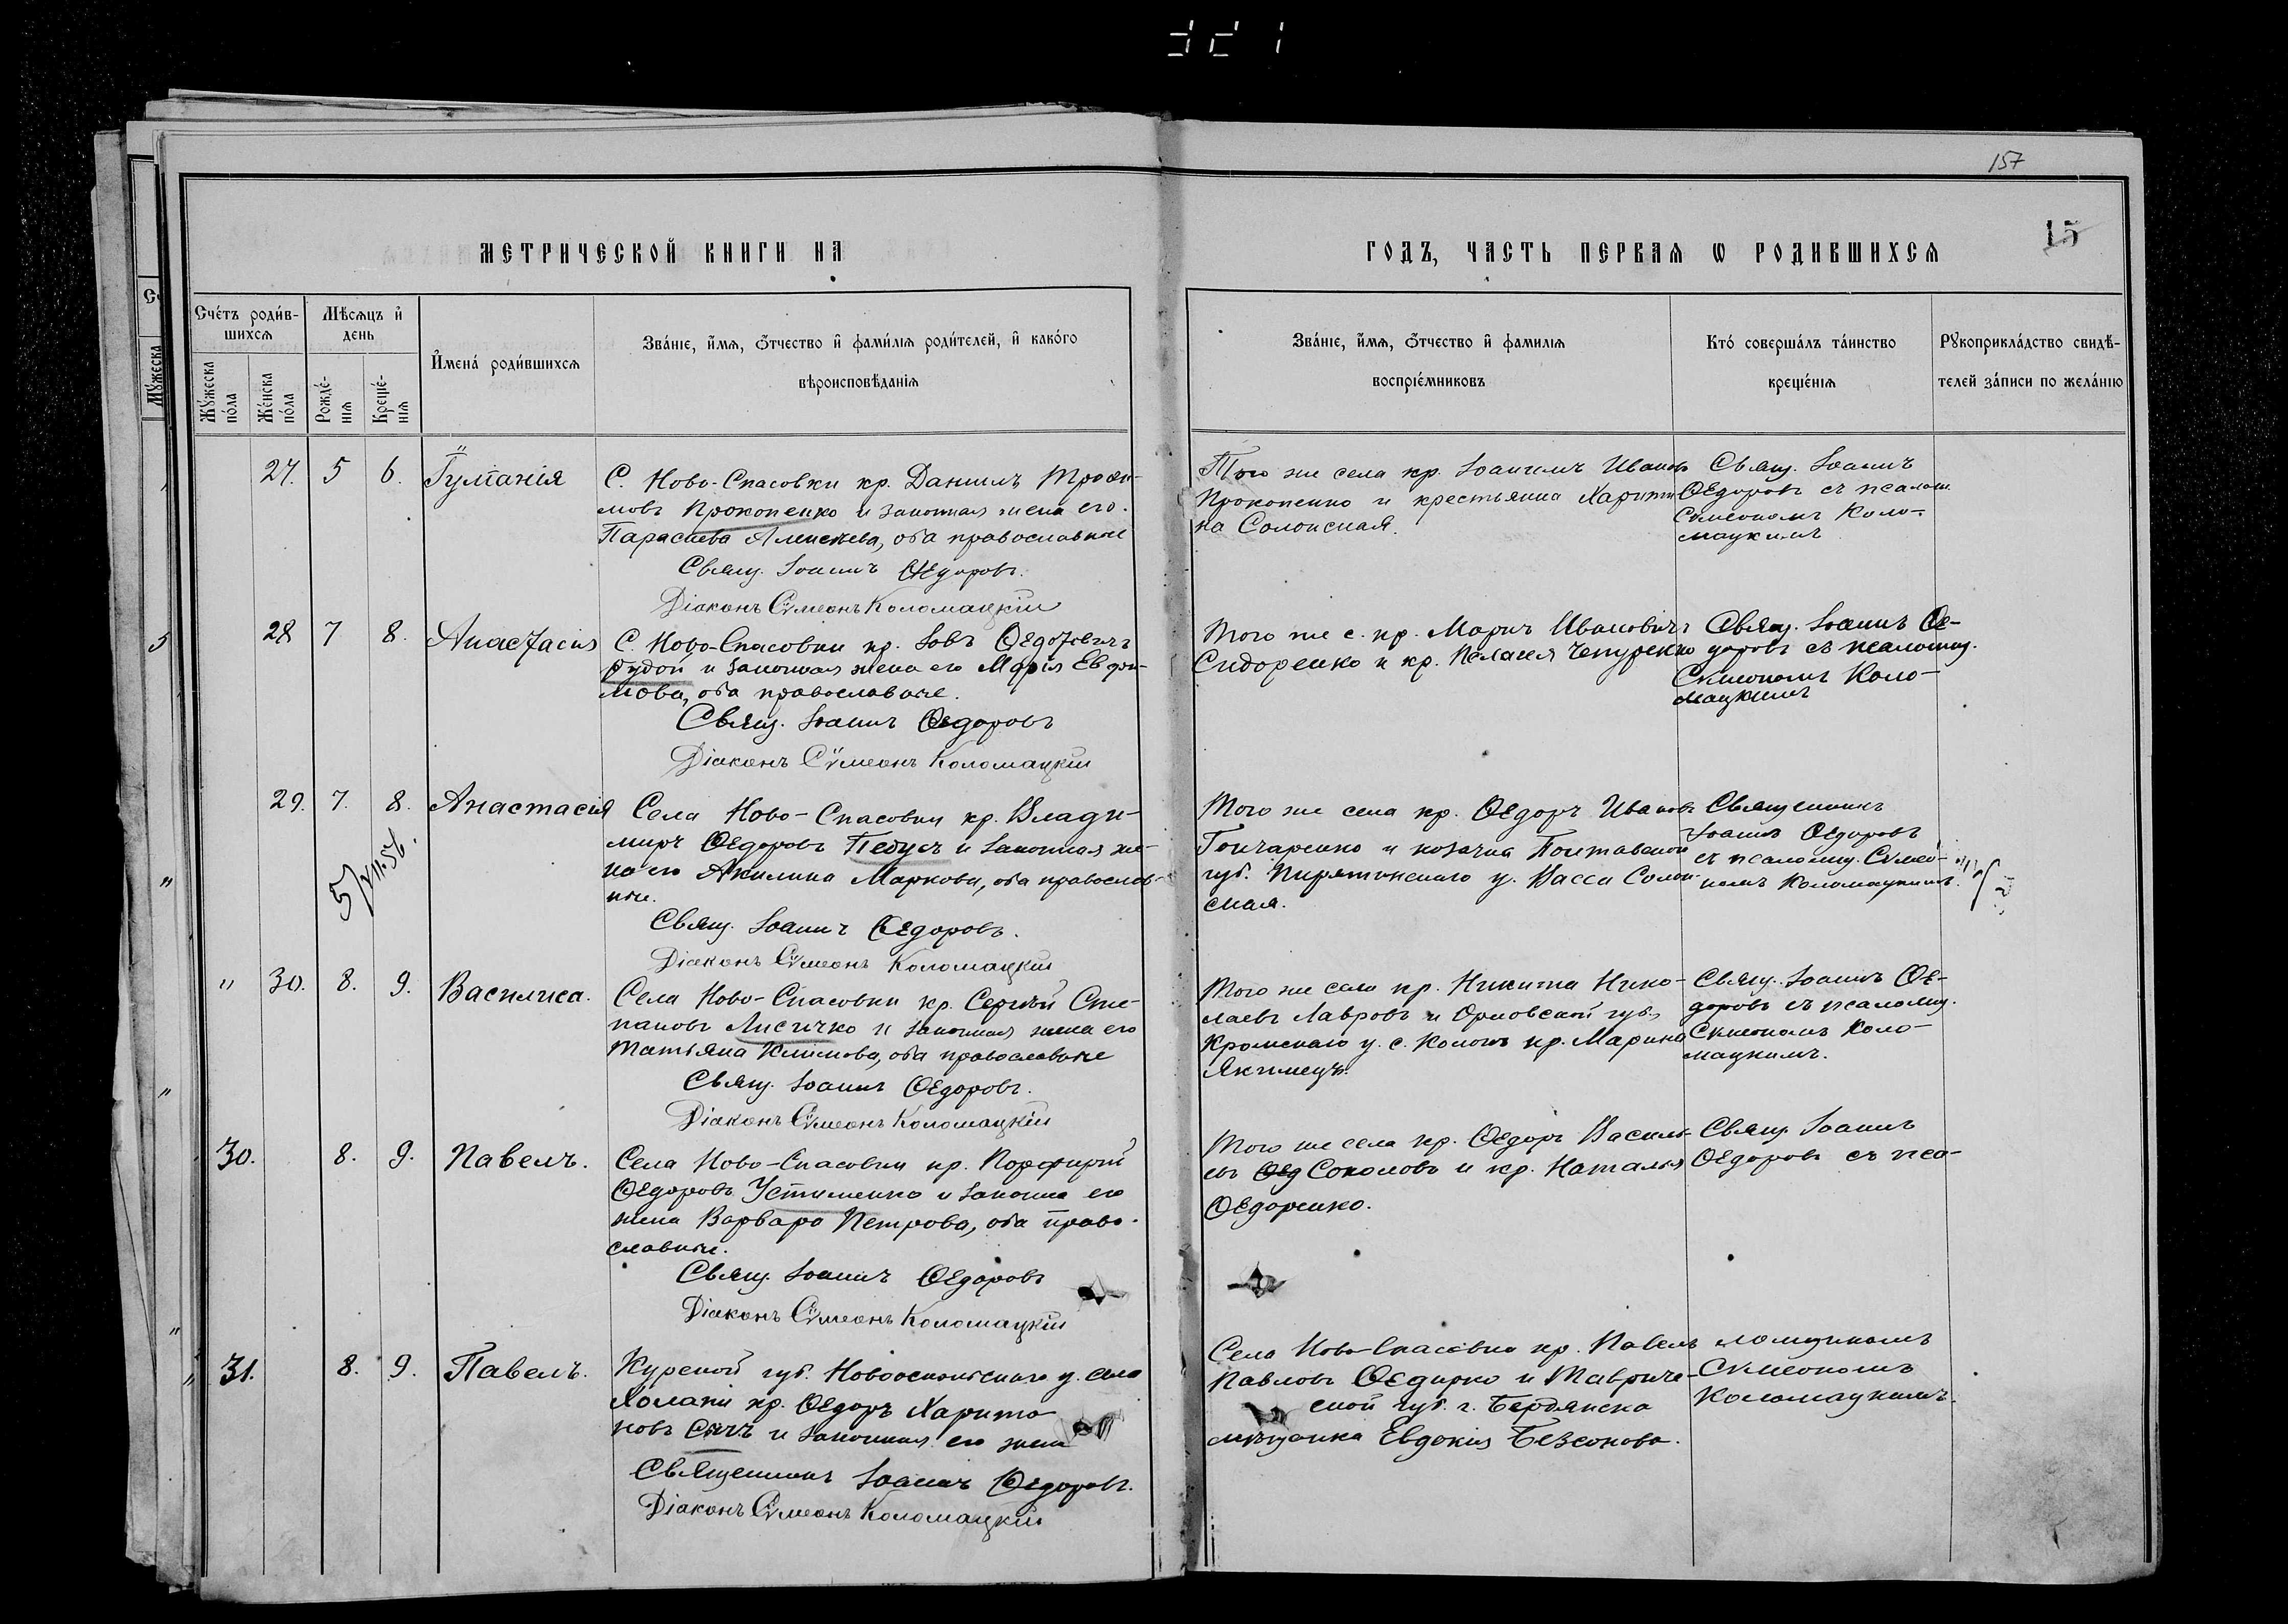 157
15
МЕТРИЧЕСКОЙ КНИГИ НА
ГОДЪ, ЧАСТЬ ПЕРВАЯ Ѡ РОДИВШИХСЯ
Счéтъ роди́в-
шихся
Мѣ́сяцъ и҆
день
Мꙋ́жеска по́ла
Же́нска по́ла
Рожде́-
нїя
Креще́-
нїя
И҆мена́ роди́вшихся
Зва́нїе, и҆́мя, ѻ҆́тчество и҆ фами́лїя роди́телей, и҆ како́го
вѣроисповѣ́данїя
Зва́нїе, и҆́мя, ѻ҆́тчество и҆ фамилїя
воспрїе́мниковъ
Кто́ соверша́лъ та́инство
креще́нїя
Рꙋкоприкла́дство свидѣ́-
телей за́писи по жела́нїю
27. 5 6. Гликерія
С. Ново-Спасовки кр. Даниилъ Трофи-
мовъ Прокопенко и законная жена его.
Параскева Алексѣева, оба православные
Свящ. Іоаннъ Ѳедоровъ.
Діаконъ Сѵмеонъ Коломацкій
Того же села кр. Иванов
Прокопенко и крестьянка Харити
на Солонская.
Свящ. Іоаннъ
Ѳедоровъ съ псалом
Сѵмеономъ Коло-
мацкимъ
28 7 8. Анастасія
С. Ново-Спасовки кр. Іовъ Ѳедотовичъ
Рудой и законная жена его Марія Евфи-
мова, оба православные.
Свящ. Іоаннъ Ѳедоровъ
Діаконъ Сѵмеонъ Коломацкій
Того же с. кр. Марк Ивановичъ
Сидоренко и кр. Пелагея Чепуренко
Свящ. Іоаннъ Ѳе-
доровъ съ псаломщ.
Сѵмеономъ Коло-
мацкимъ
29. 7. 8. Анастасія
5/VII.56.
Села Ново-Спасовки кр. Влади-
миръ Ѳедоровъ Педусъ и законная же-
на его Акилина Маркова, оба православ-
ные.
Свящ. Іоаннъ Ѳедоровъ.
Діаконъ Сѵмеонъ Коломацкій
Того же села кр. Ѳедоръ Ивановъ
Гончаренко и козачка Полтавской
губ. Пирятинскаго у. Васса Солон-
ская.
Священникъ
Іоаннъ Ѳедоровъ
съ псаломщ. Сѵмео-
номъ Коломацкимъ.
" 30. 8. 9. Василиса.
Села Ново-Спасовки кр. Сергѣй Сте-
пановъ Лисичко и законная жена его
Татьяна Климова, оба православные
Свящ. Іоаннъ Ѳедоровъ.
Діаконъ Сѵмеонъ Коломацкій
Того же села кр. Никита Нико-
лаевъ Лавровъ и Орловской губ.
Кромскаго у. с. кр. Марина
Якимецъ.
Свящ. Іоаннъ Ѳе-
доровъ съ псаломщ.
Сѵмеономъ Коло-
мацкимъ.
30. 8. 9. Павелъ.
Села Ново-Спасовки кр. Порфирій
Ѳедоровъ Устименко и законна его
жена Варвара Петрова, оба право-
славные.
Свящ. Іоаннъ Ѳедоровъ
Діаконъ Сѵмеонъ Коломацкій
Того же села кр. Ѳедоръ Василь
евъ Ѳед Соколовъ и кр. Наталья
Ѳедоренко.
Свящ. Іоаннъ
Ѳедоровъ съ пса-
31. 8. 9. Павелъ.
Курской губ. Новооскольскаго у. села
Холани кр. Ѳедоръ Харито-
новъ Сычъ и законная его жена
Священникъ Іоаннъ Ѳедоровъ.
Діаконъ Сѵмеонъ Коломацкій
Села Ново-Спасовки кр. Павелъ
Павловъ Ѳедирко и Тавриче-
ской губ. г. Бердянска
мѣщанка Евдокія Безсонова.
ломщикомъ
Сѵмеономъ
Коломацкимъ.